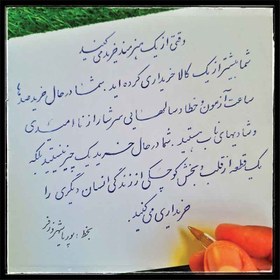 وقتی از یک هنرمند خرید می کنید
شما بیشتر از یک کالا خریداری کرده اید. شما در حال خرید صدها
ساعت آزمون و خطا و سالهایی سرشار از نا امیدی
و شادیهای ناب هستید. شما در حال خرید یک چیز نیستید بلکه
یک قطعه از قلب و بخش کوچکی از زندگی انسان دیگری را
خریداری می کنید.
بخط: پوریا